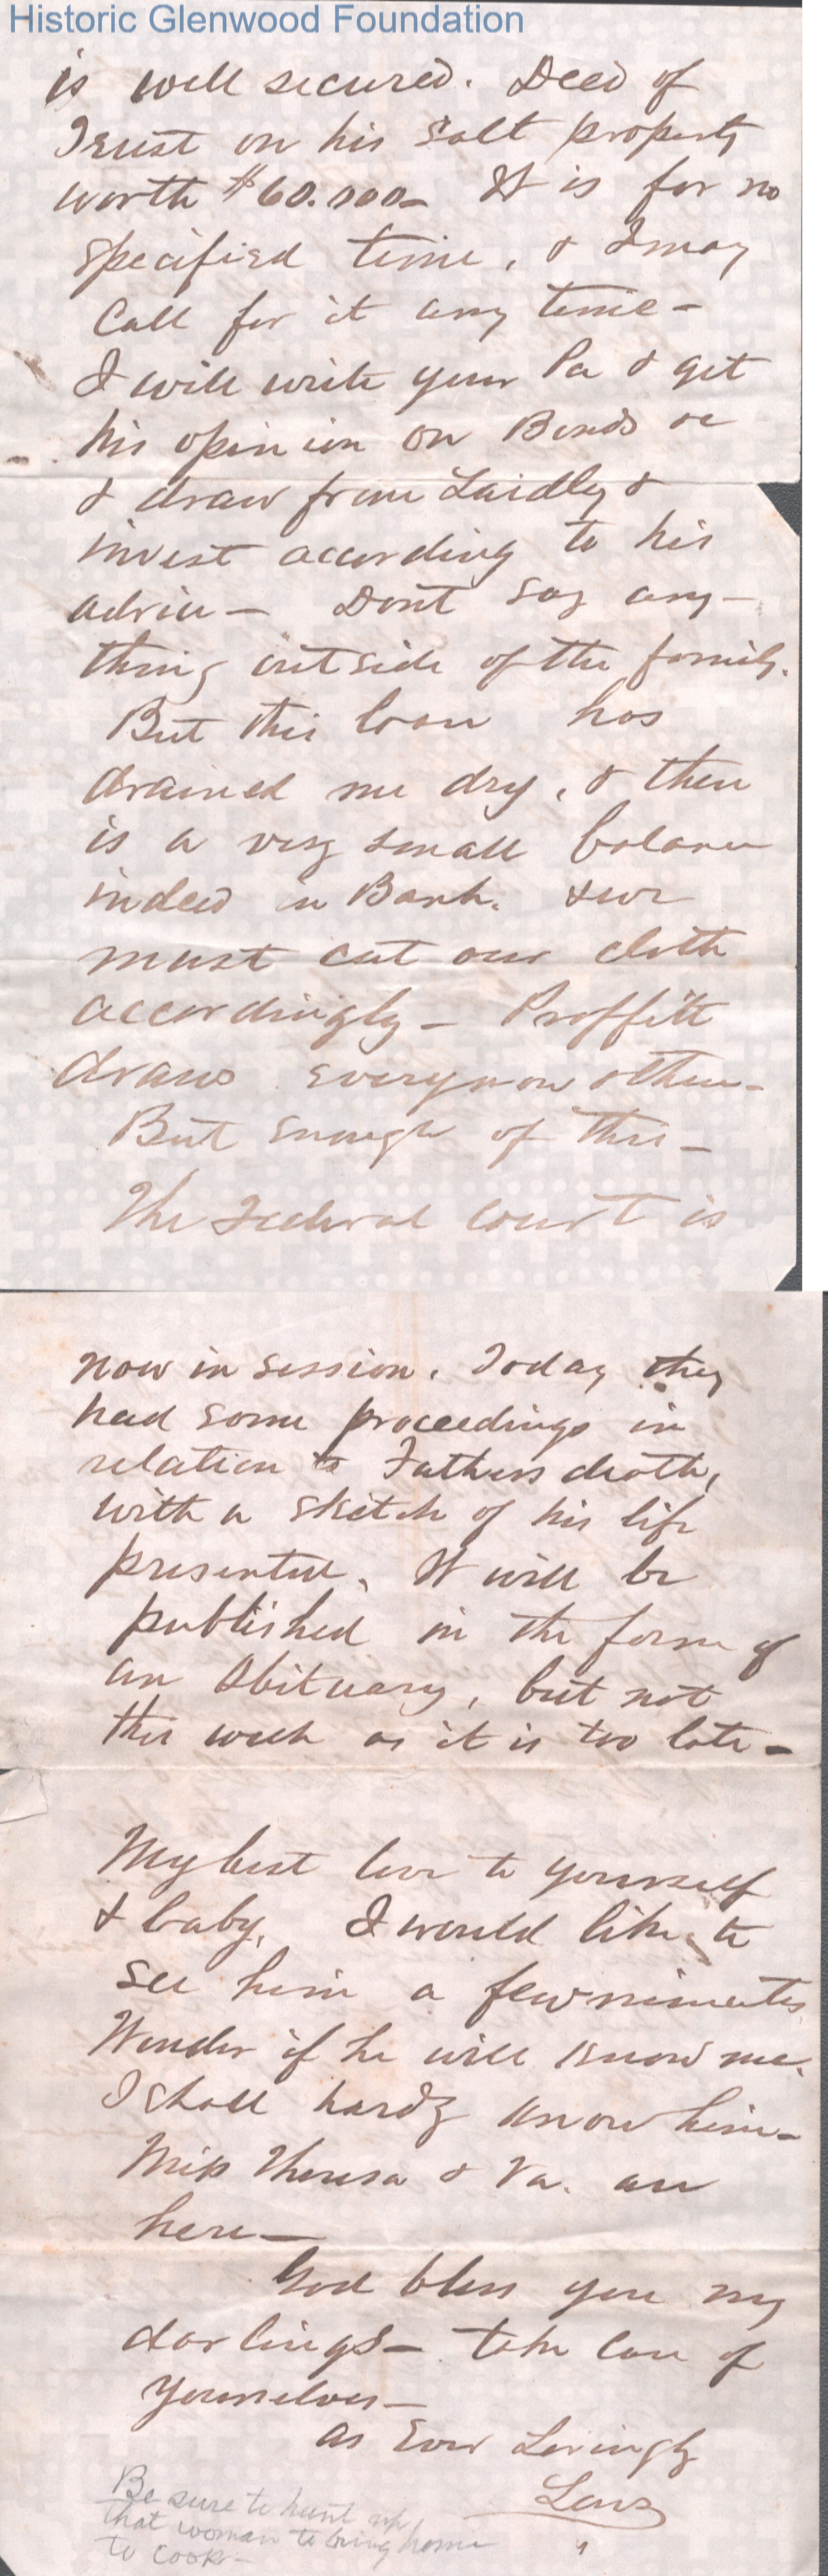 Historic Glenwood Foundation
is well secured. Deed of
Trust on his Salt property
worth $60.000- It is for no
specified time, & I may
Call for it any time -
I will write your Pa & get
his opinion on Bonds &c
& draw from Laidley &
invest according to his
advice - Dont say any-
thing outside of the family.
But this loan has
drained me dry, & there
is a very small balance
indeed in Bank. & we
must cut our cloth
accordingly - Proffitt
draws every now & then -
But enough of this -
The Federal Court is
now in session. Today they
had some proceedings in
relation to Fathers death,
with a sketch of his life
presented. It will be
published in the form of
an Obituary, but not
this week as it is too late -
My best love to yourself
& baby. I would like to
see him a few minutes
Wonder if he will know me.
I shall hardly know him -
Miss Theresa & Va. are
here -
God bless you my
darlings - take care of
yourselves -
As Ever Lovingly
Be sure to hunt up
that woman to bring home
to cook -